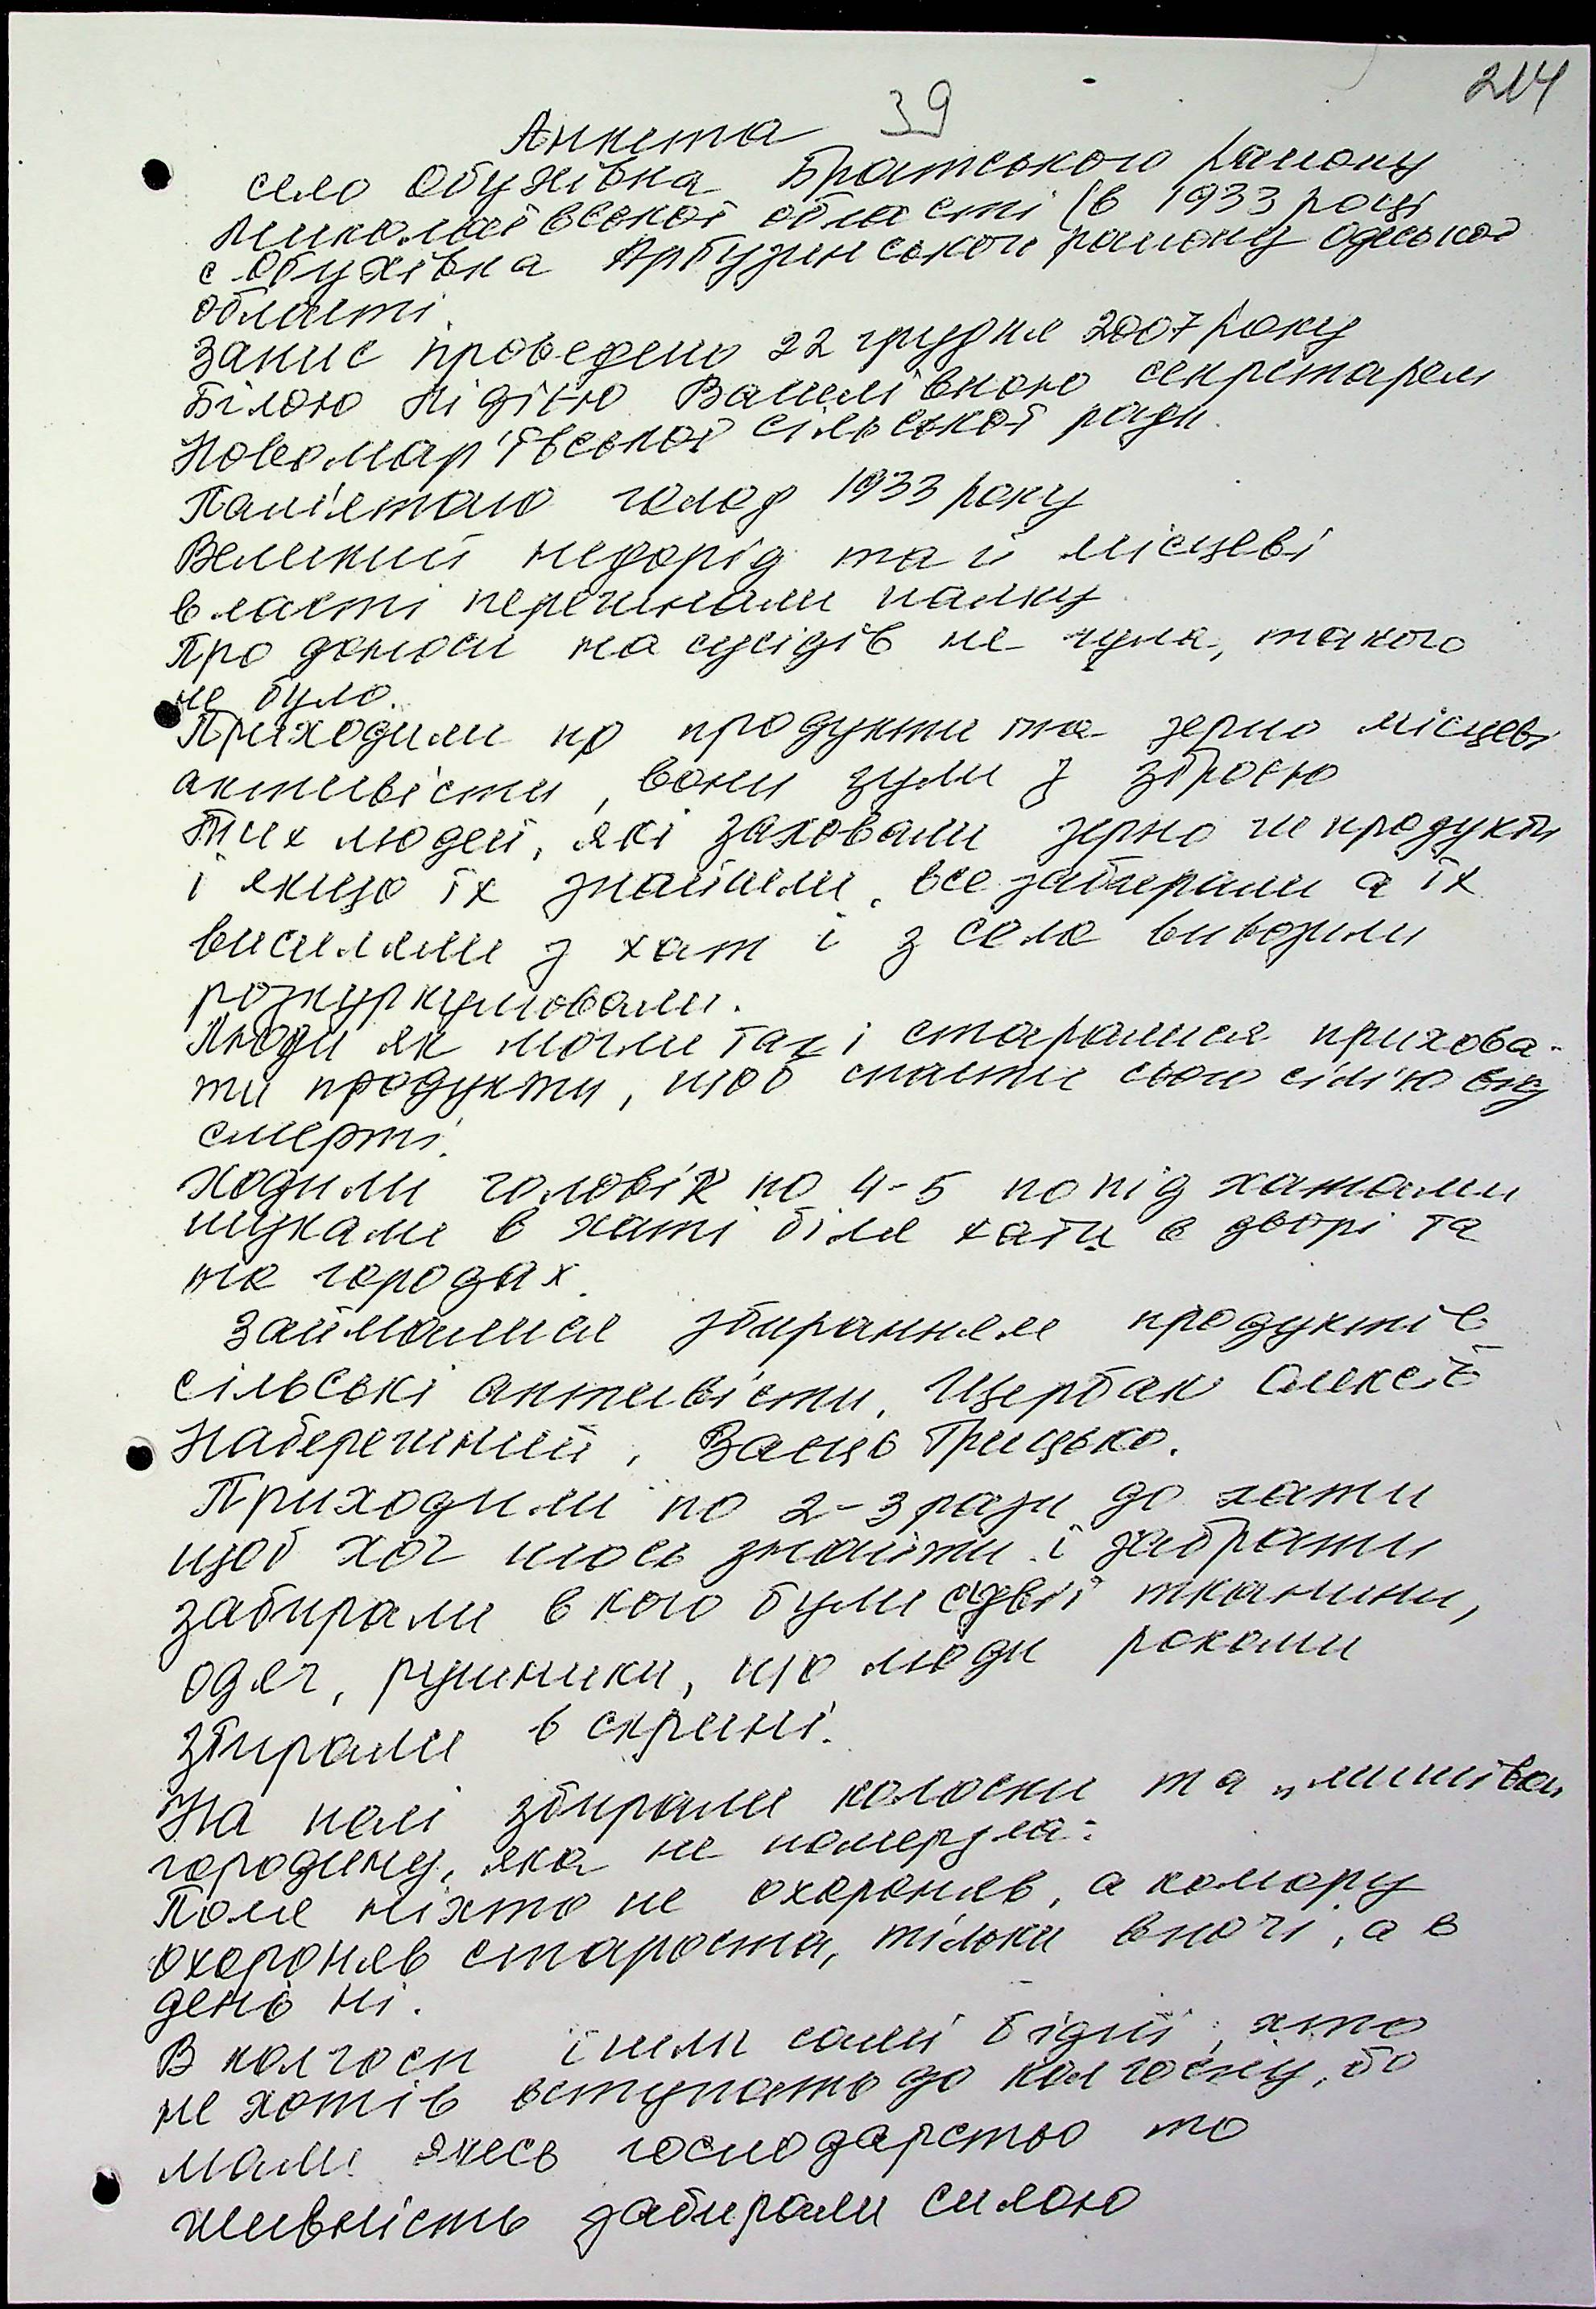 214
39
Анкета
село Обухівка Братського району
Миколаївської області (в 1933 році
с Обухівка Арбузинського району Одеської
області.
Запис проведено 22 грудня 2007 року
Білою Лідією Василівною секретарем
Новомар'ївської сільської ради.
Пам'ятаю голод 1933 року
Великий недорід та й місцеві
власті перегинали палку.
Про доноси на сусідів не чула, такого
не було.
Приходили по продукти та зерно місцеві
активісти, вони були з зброєю
Тих людей, які заховали зерно чи продукти
і якщо їх знайшли, все забирали а їх
висиляли з хат і з села вивозили
розкуркулювали.
Люди як могли так і старалися прихова-
ти продукти, щоб спасти свою сім'ю від
смерті.
Ходили чоловік по 4-5 попід хатами
шукали в хаті біля хати в дворі та
на городах.
Займалися збиранням продуктів
сільські активісти, Щербак Олексій
Набережний, Заєць Грицько.
Приходили по 2-3 рази до хати
щоб хоч щось знайти і забрати
забирали в кого були сувії тканини,
одяг, рушники, що люди роками
збирали в скрині.
На полі збирали колоски та
городину, яка не померзла.
Поле ніхто не охороняв, а комору
охороняв староста, тільки вночі, а в
день ні.
В колгосп йшли самі бідні, хто
не хотів вступать до колгоспу, бо
мали якесь господарство то
живність забирали силою